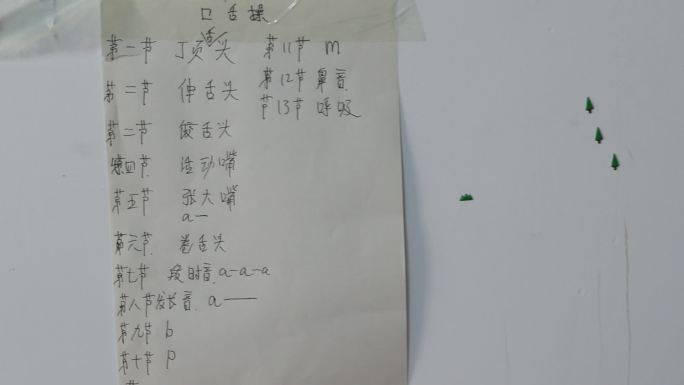 口舌操
第一节 顶舌头
第二节 伸舌头
第二节 咬舌头
第四节 活动嘴
第五节 张大嘴
a一
第六节 卷舌头
第七节 段时音 a-a-a
第八节发长音 a——
第九节 b
第十节 p
第11节 m
第12节 鼻音
节13节 呼吸